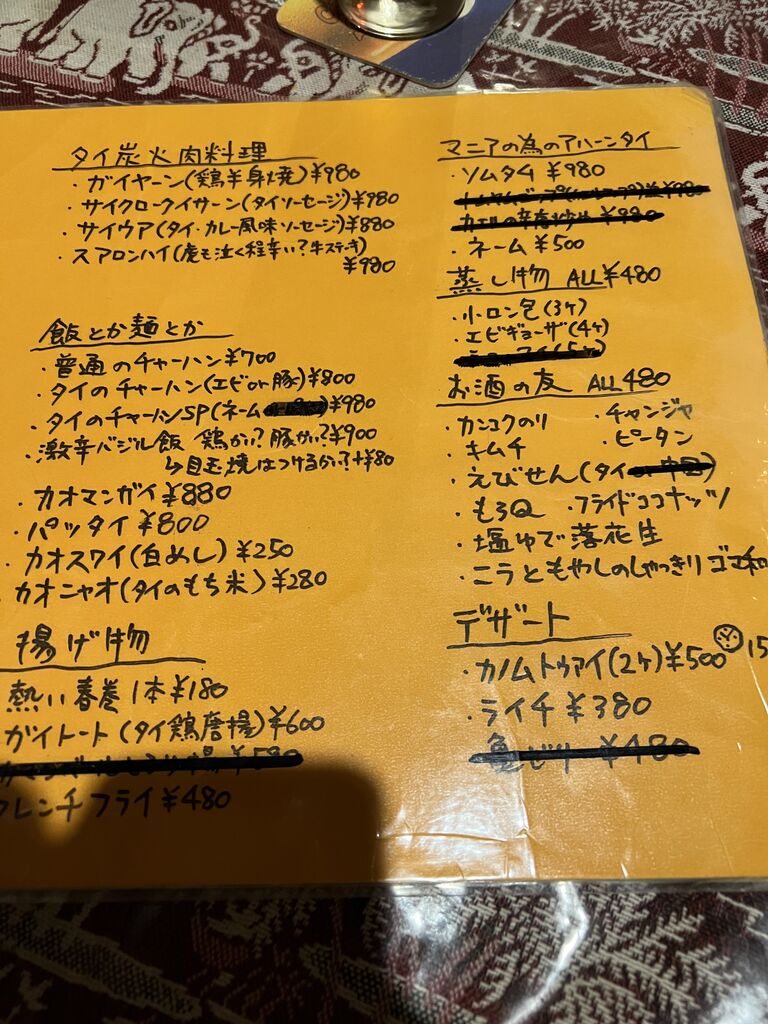 タイ炭火肉料理
・ガイヤーン(鶏半身焼)¥980
・サイクロークイサーン(タイソーセージ)¥980
・サイウア(タイ・カレー風味ソーセージ)¥880
・スアロンハイ(虎も泣く程辛い?牛ステーキ)
¥980
飯とか麺とか
・普通のチャーハン¥700
・タイのチャーハン(エビor豚)¥800
・タイのチャーハンSP(ネーム)¥980
・激辛バジル飯 鶏かい?豚かい?¥900
↳目玉焼はつけるかい?+¥80
・カオマンガイ¥880
・パッタイ¥800
・カオスワイ(白めし)¥250
カオニャオ(タイのもち米)¥280
揚げ物
熱い春巻1本¥180
ガイトート(タイ鶏唐揚)¥600
¥580
フレンチフライ¥480
マニアの為のアハーンタイ
・ソムタム ¥980
¥980
カエルの辛春炒め ¥980
・ネーム ¥500
蒸し物 ALL¥480
・小ロン包(3ヶ)
・エビギョーザ(4ヶ)
お酒の友 ALL480
・カンコクのり ・チャンジャ
・キムチ ・ピータン
・えびせん(タイor中国)
・もろQ ・フライドココナッツ
・塩ゆで落花生
・ニラともやしのしゃっきりゴマ和
デザート
・カノムトゥアイ(2ヶ)¥500 15
・ライチ ¥380
亀ゼリー ¥480